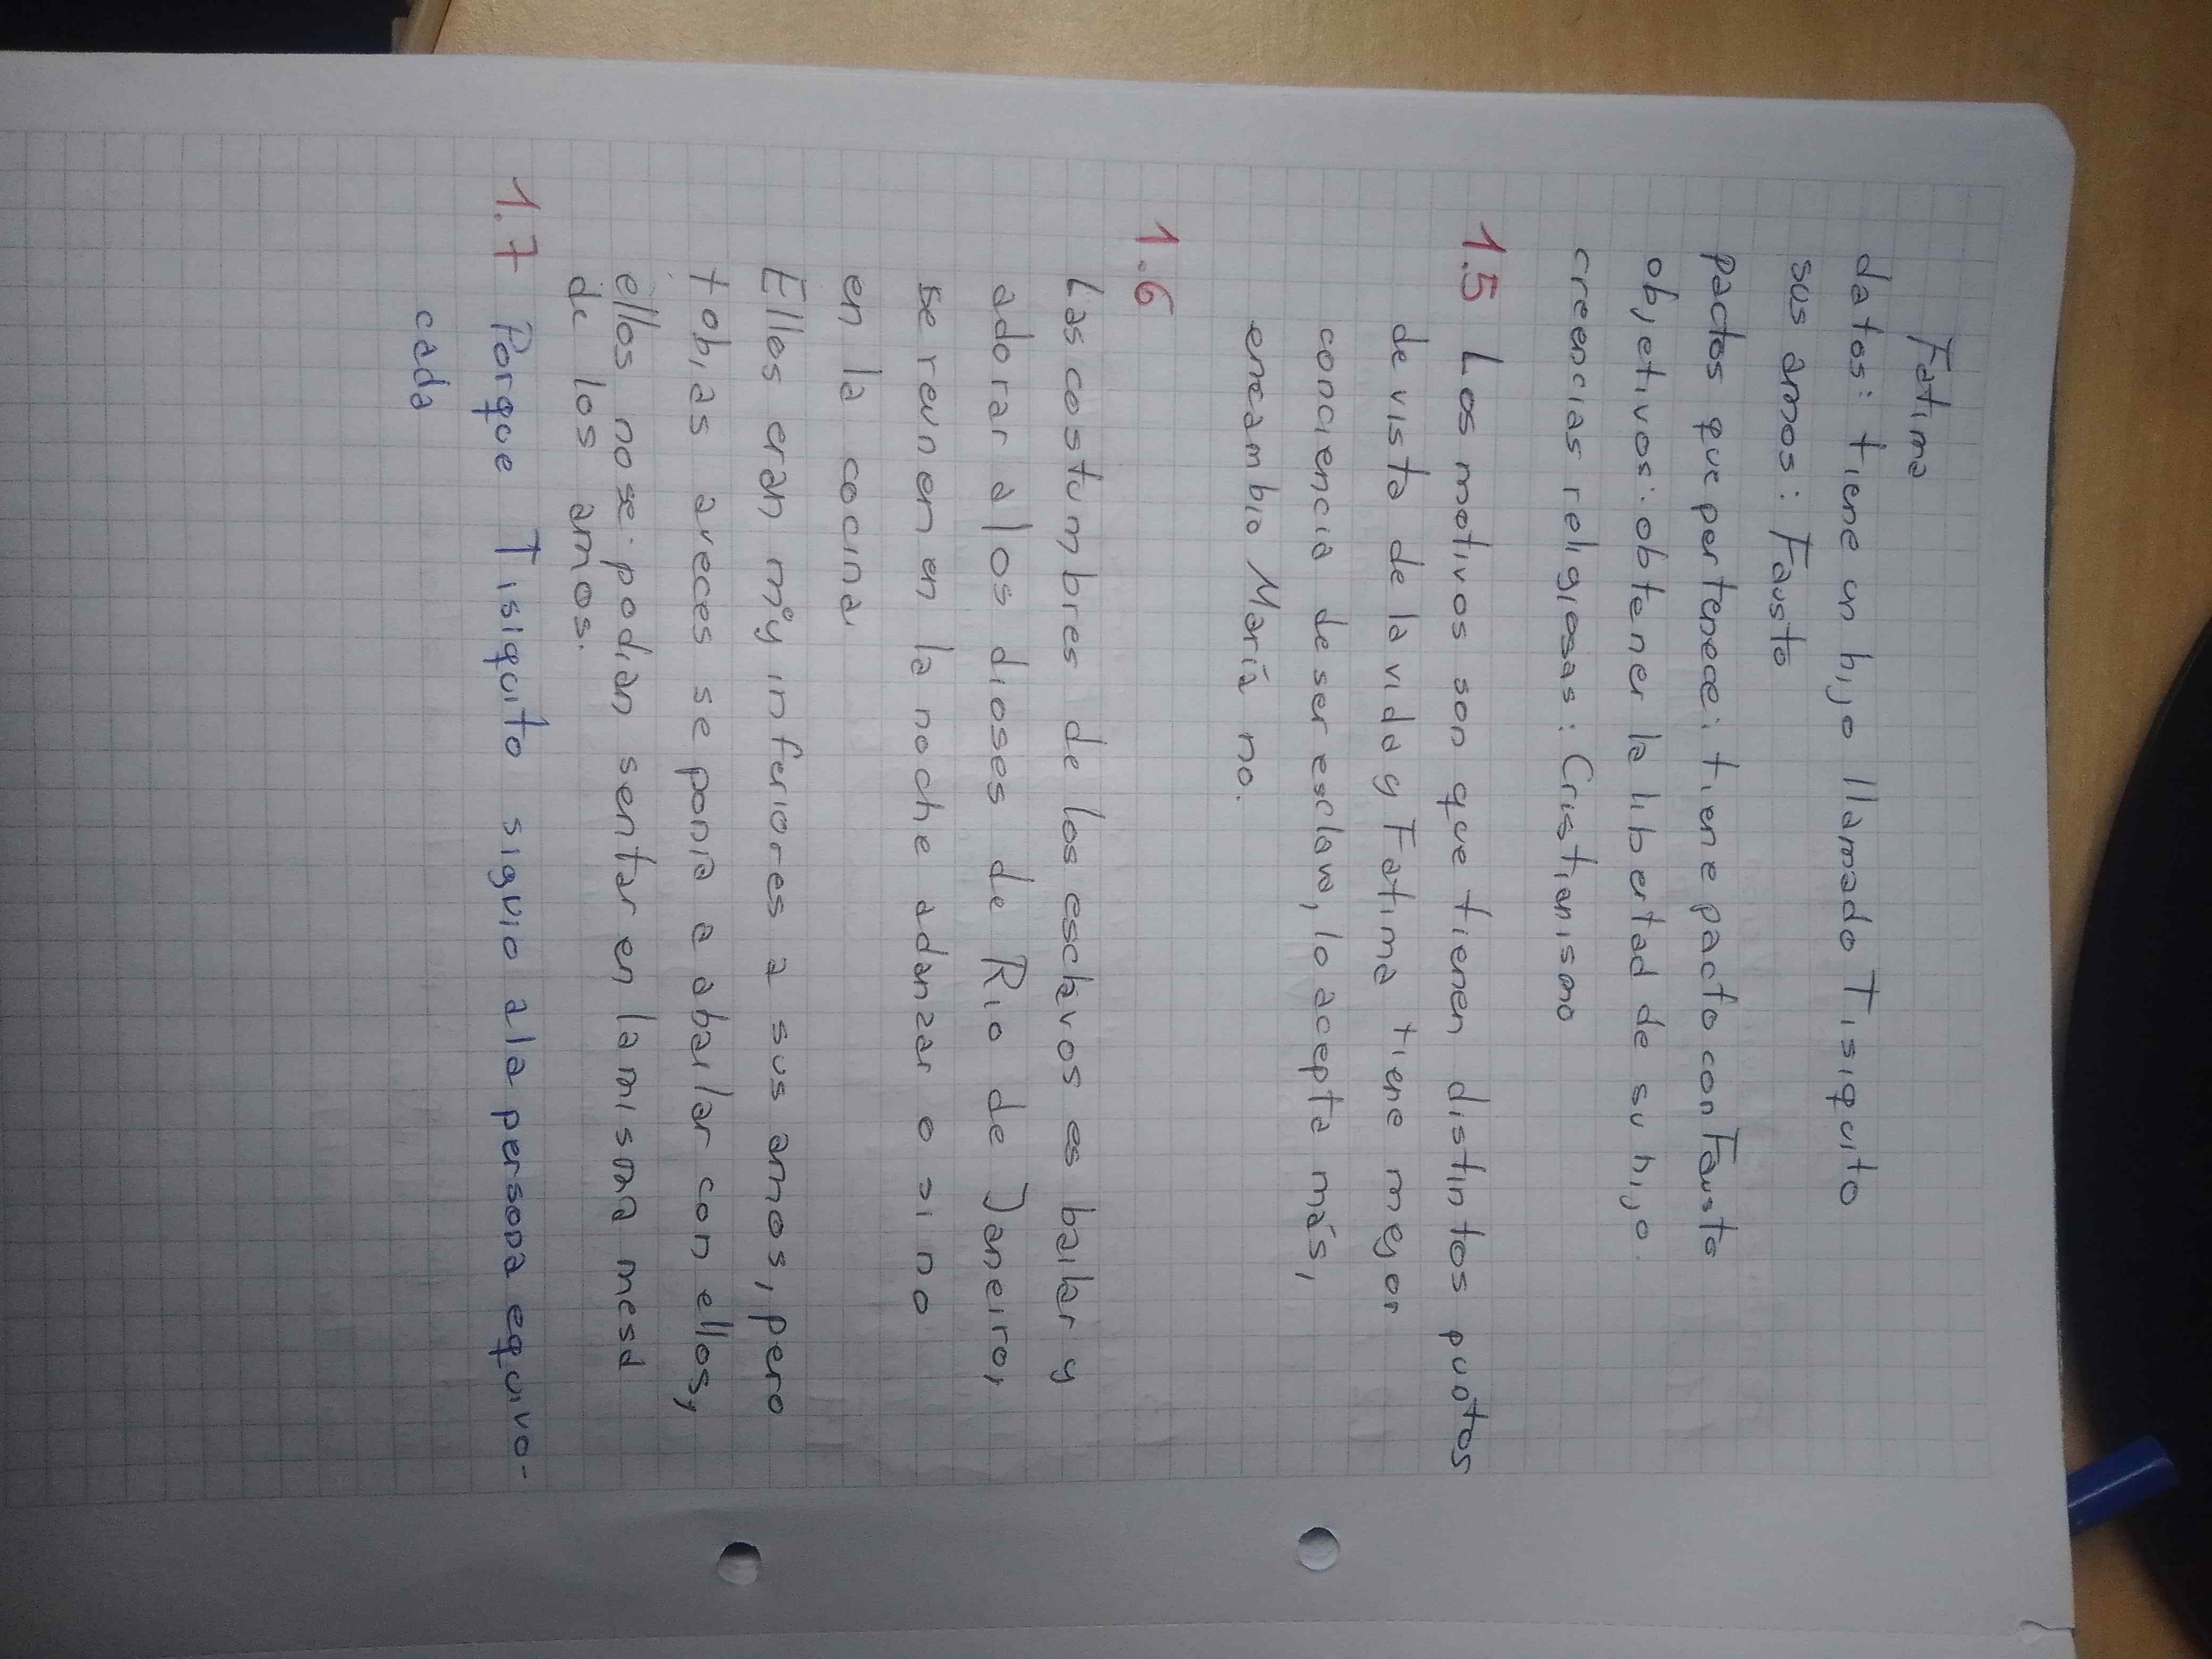 Fatima
datos: tiene un hijo llamado Tisiquito
sus amos: Fausto
pactos que pertenece: tiene pacto con Fausto
objetivos: obtener la libertad de su hijo.
creencias religiosas: Cristianismo
1.5 Los motivos son que tienen distintos puotos
de vista de la vida y Fatima tiene mejor
conciencia de ser esclava, lo acepta más,
encambio María no.
1.6
Las costumbres de los esclavos es bailar y
adorar a los dioses de Rio de Janeiro,
se reunen en la noche a danzar o si no
en la cocina.
Ellos eran muy inferiores a sus amos, pero
tobias aveces se ponia a abailar con ellos,
ellos no se podian sentar en la misma mesa
de los amos.
1.7 Porque Tisiquito siguio ala persona equivo-
cada